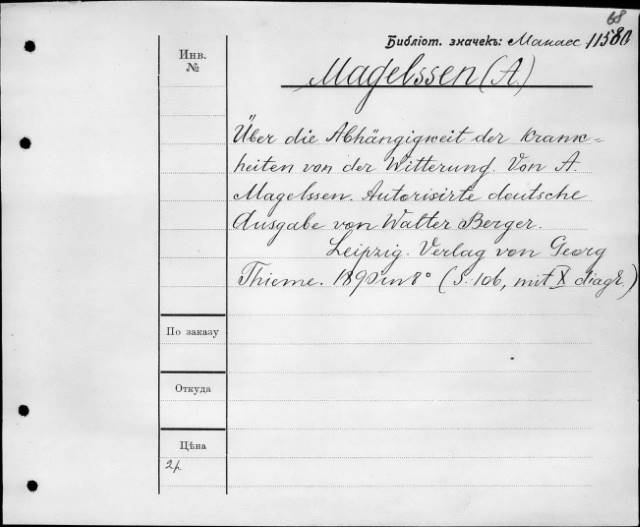 68
Библіот. значекъ: Манасс 11580
Инв.
№
Magelssen (A.)
Über die Abhängigkeit der krank=
heiten von der Witterung. Von A.
Magelssen. Autorisirte deutsche
Ausgabe von Walter Berger.
Leipzig. Verlag von Georg
Thieme. 1890 in 8° (S. 106, mit X diagr.)
По заказу
Откуда
Цѣна
2р